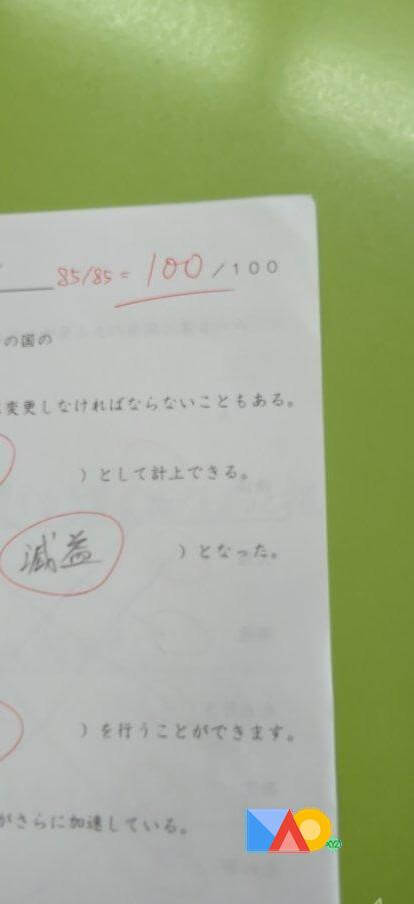 85/85 = 100/100
の国の
変更しなければならないこともある。
)として計上できる。
減益 )となった。
)を行うことができます。
がさらに加速している。
XYZ